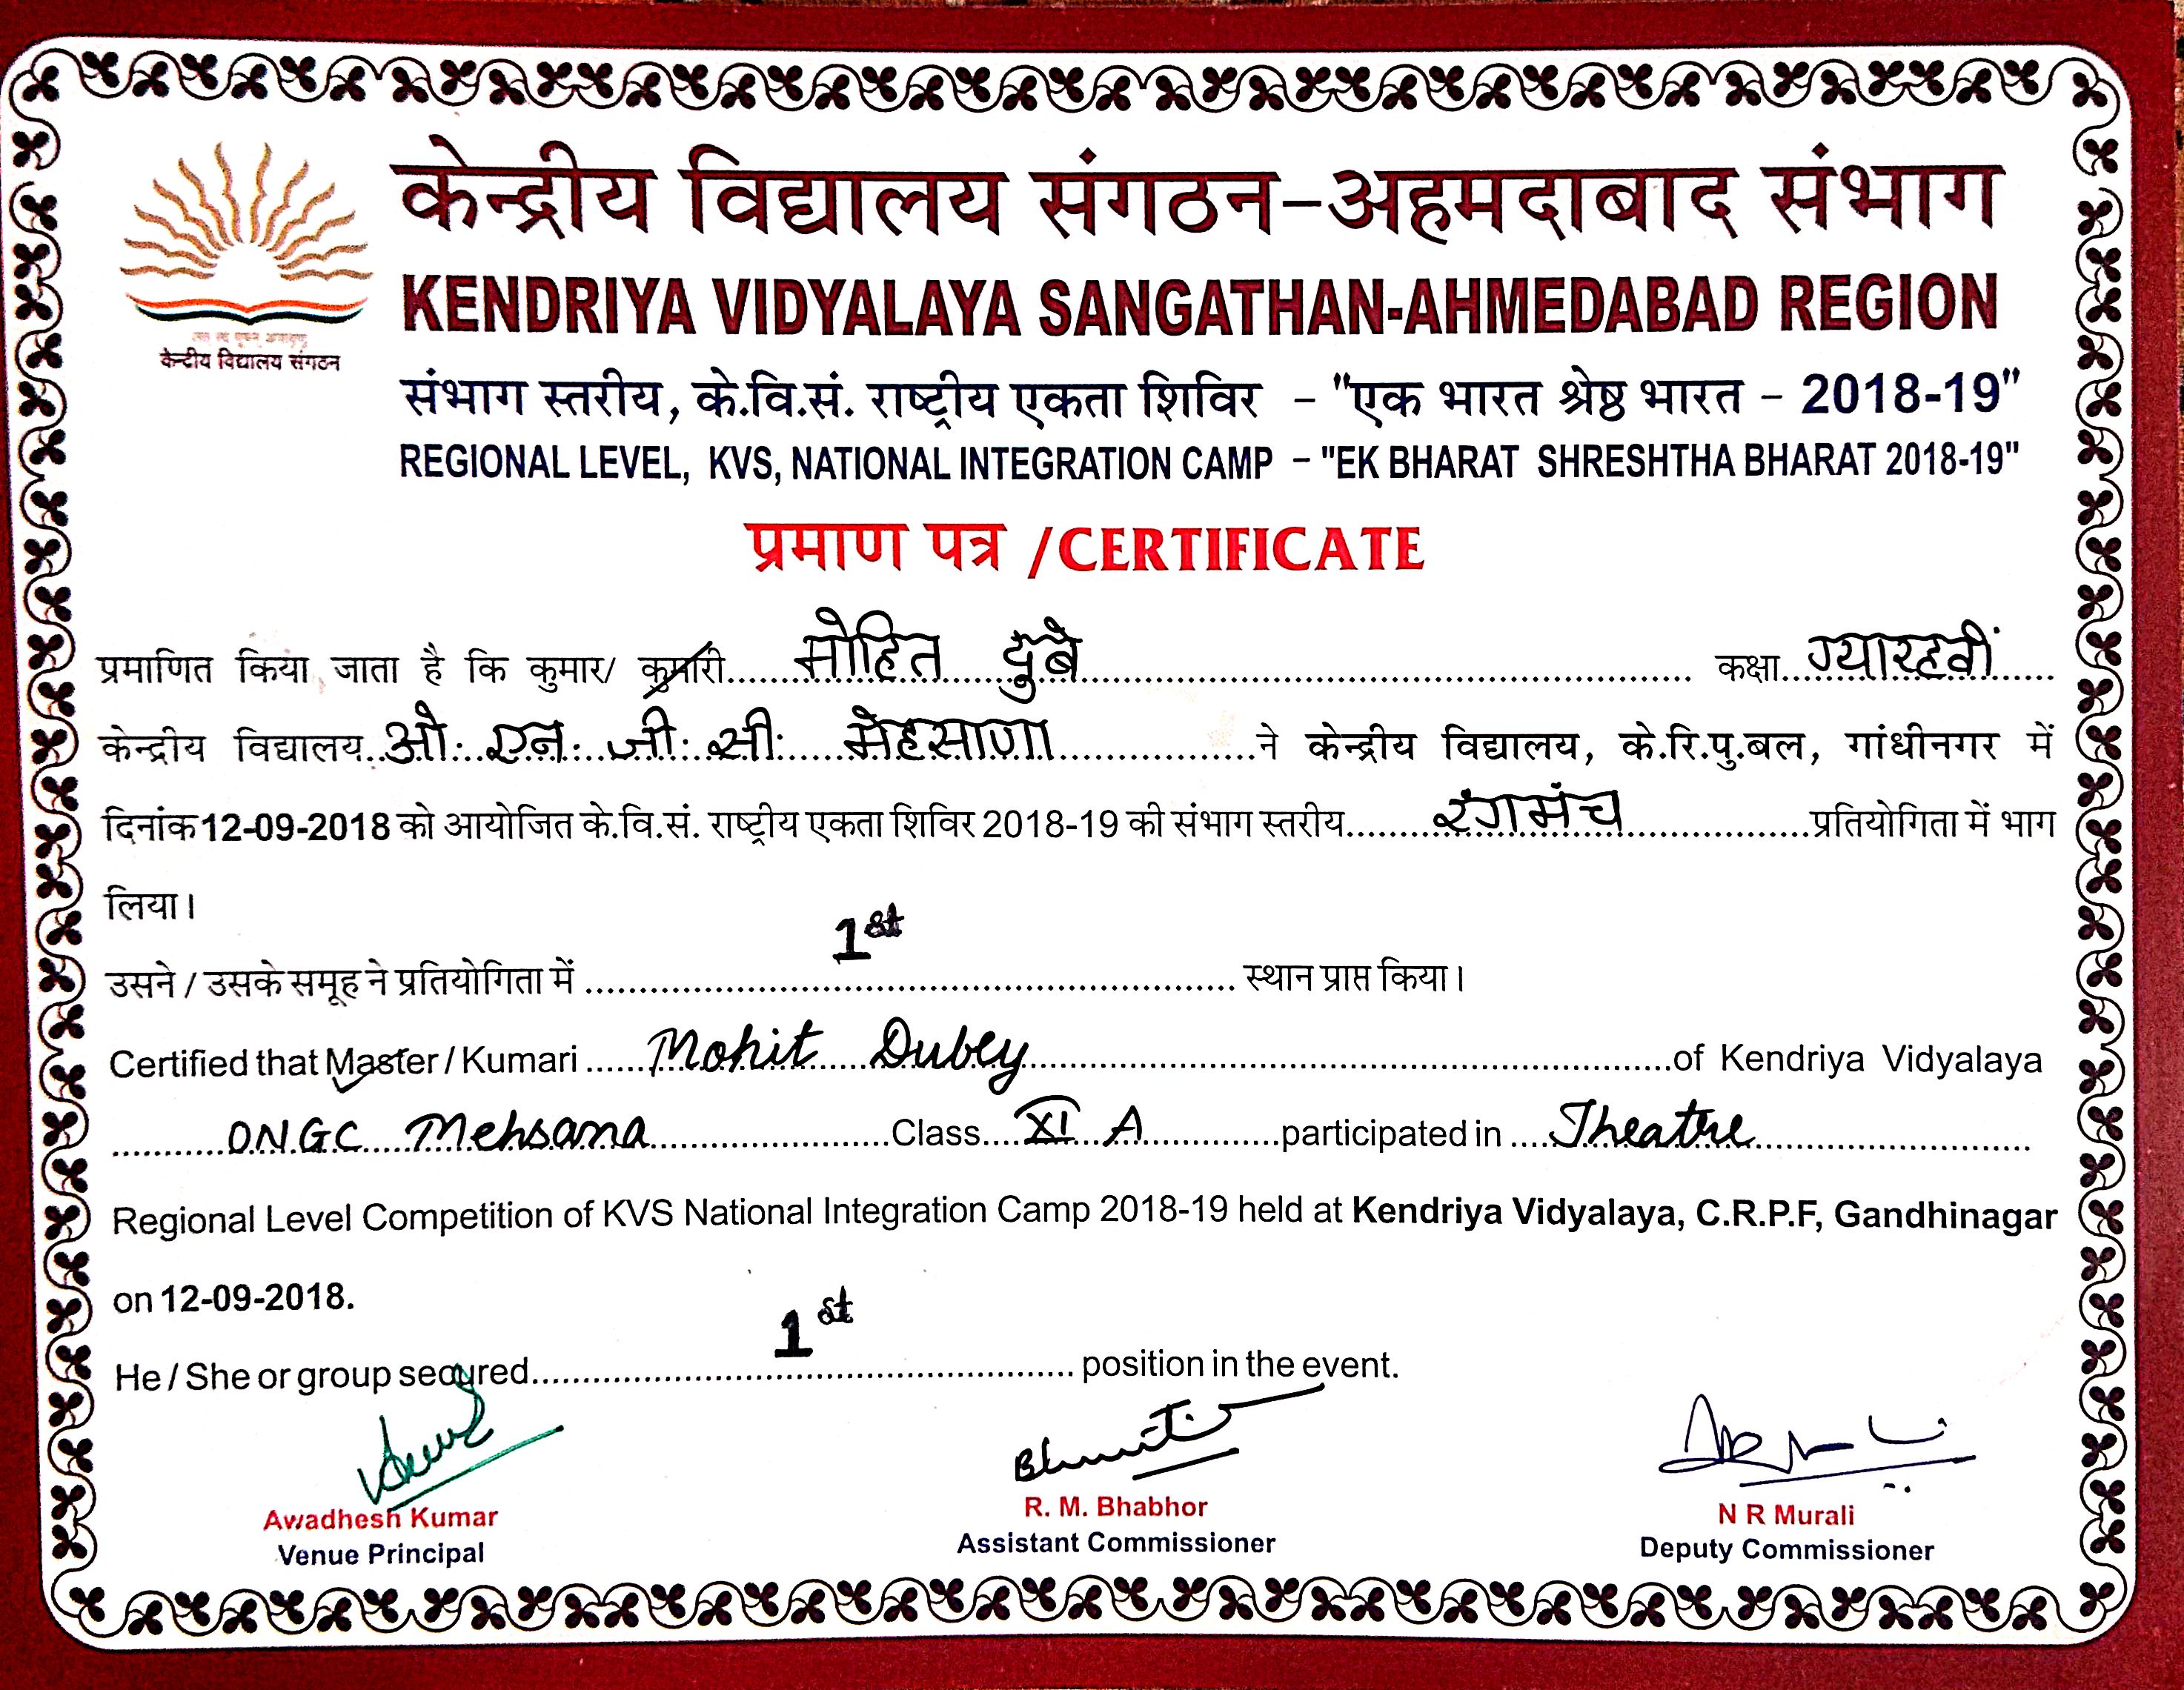 केन्द्रीय विद्यालय संगठन-अहमदाबाद संभाग
KENDRIYA VIDYALAYA SANGATHAN-AHMEDABAD REGION
केन्द्रीय विद्यालय संगठन
संभाग स्तरीय, के.वि.सं. राष्ट्रीय एकता शिविर - "एक भारत श्रेष्ठ भारत - 2018-19"
REGIONAL LEVEL, KVS, NATIONAL INTEGRATION CAMP - "EK BHARAT SHRESHTHA BHARAT 2018-19"
प्रमाण पत्र /CERTIFICATE
प्रमाणित किया जाता है कि कुमार/ कुमारी मोहित दुबे कक्षा ग्यारहवीं
केन्द्रीय विद्यालय ओ. एन. जी. सी. मेहसाणा ने केन्द्रीय विद्यालय, के.रि.पु.बल, गांधीनगर में
दिनांक 12-09-2018 को आयोजित के.वि.सं. राष्ट्रीय एकता शिविर 2018-19 की संभाग स्तरीय रंगमंच प्रतियोगिता में भाग
लिया।
उसने / उसके समूह ने प्रतियोगिता में 1st स्थान प्राप्त किया।
Certified that Master / Kumari Mohit Dubey of Kendriya Vidyalaya
O.N.G.C Mehsana Class XI A participated in Theatre
Regional Level Competition of KVS National Integration Camp 2018-19 held at Kendriya Vidyalaya, C.R.P.F, Gandhinagar
on 12-09-2018.
He / She or group secured 1st position in the event.
Awadhesh Kumar
Venue Principal
R. M. Bhabhor
Assistant Commissioner
N R Murali
Deputy Commissioner